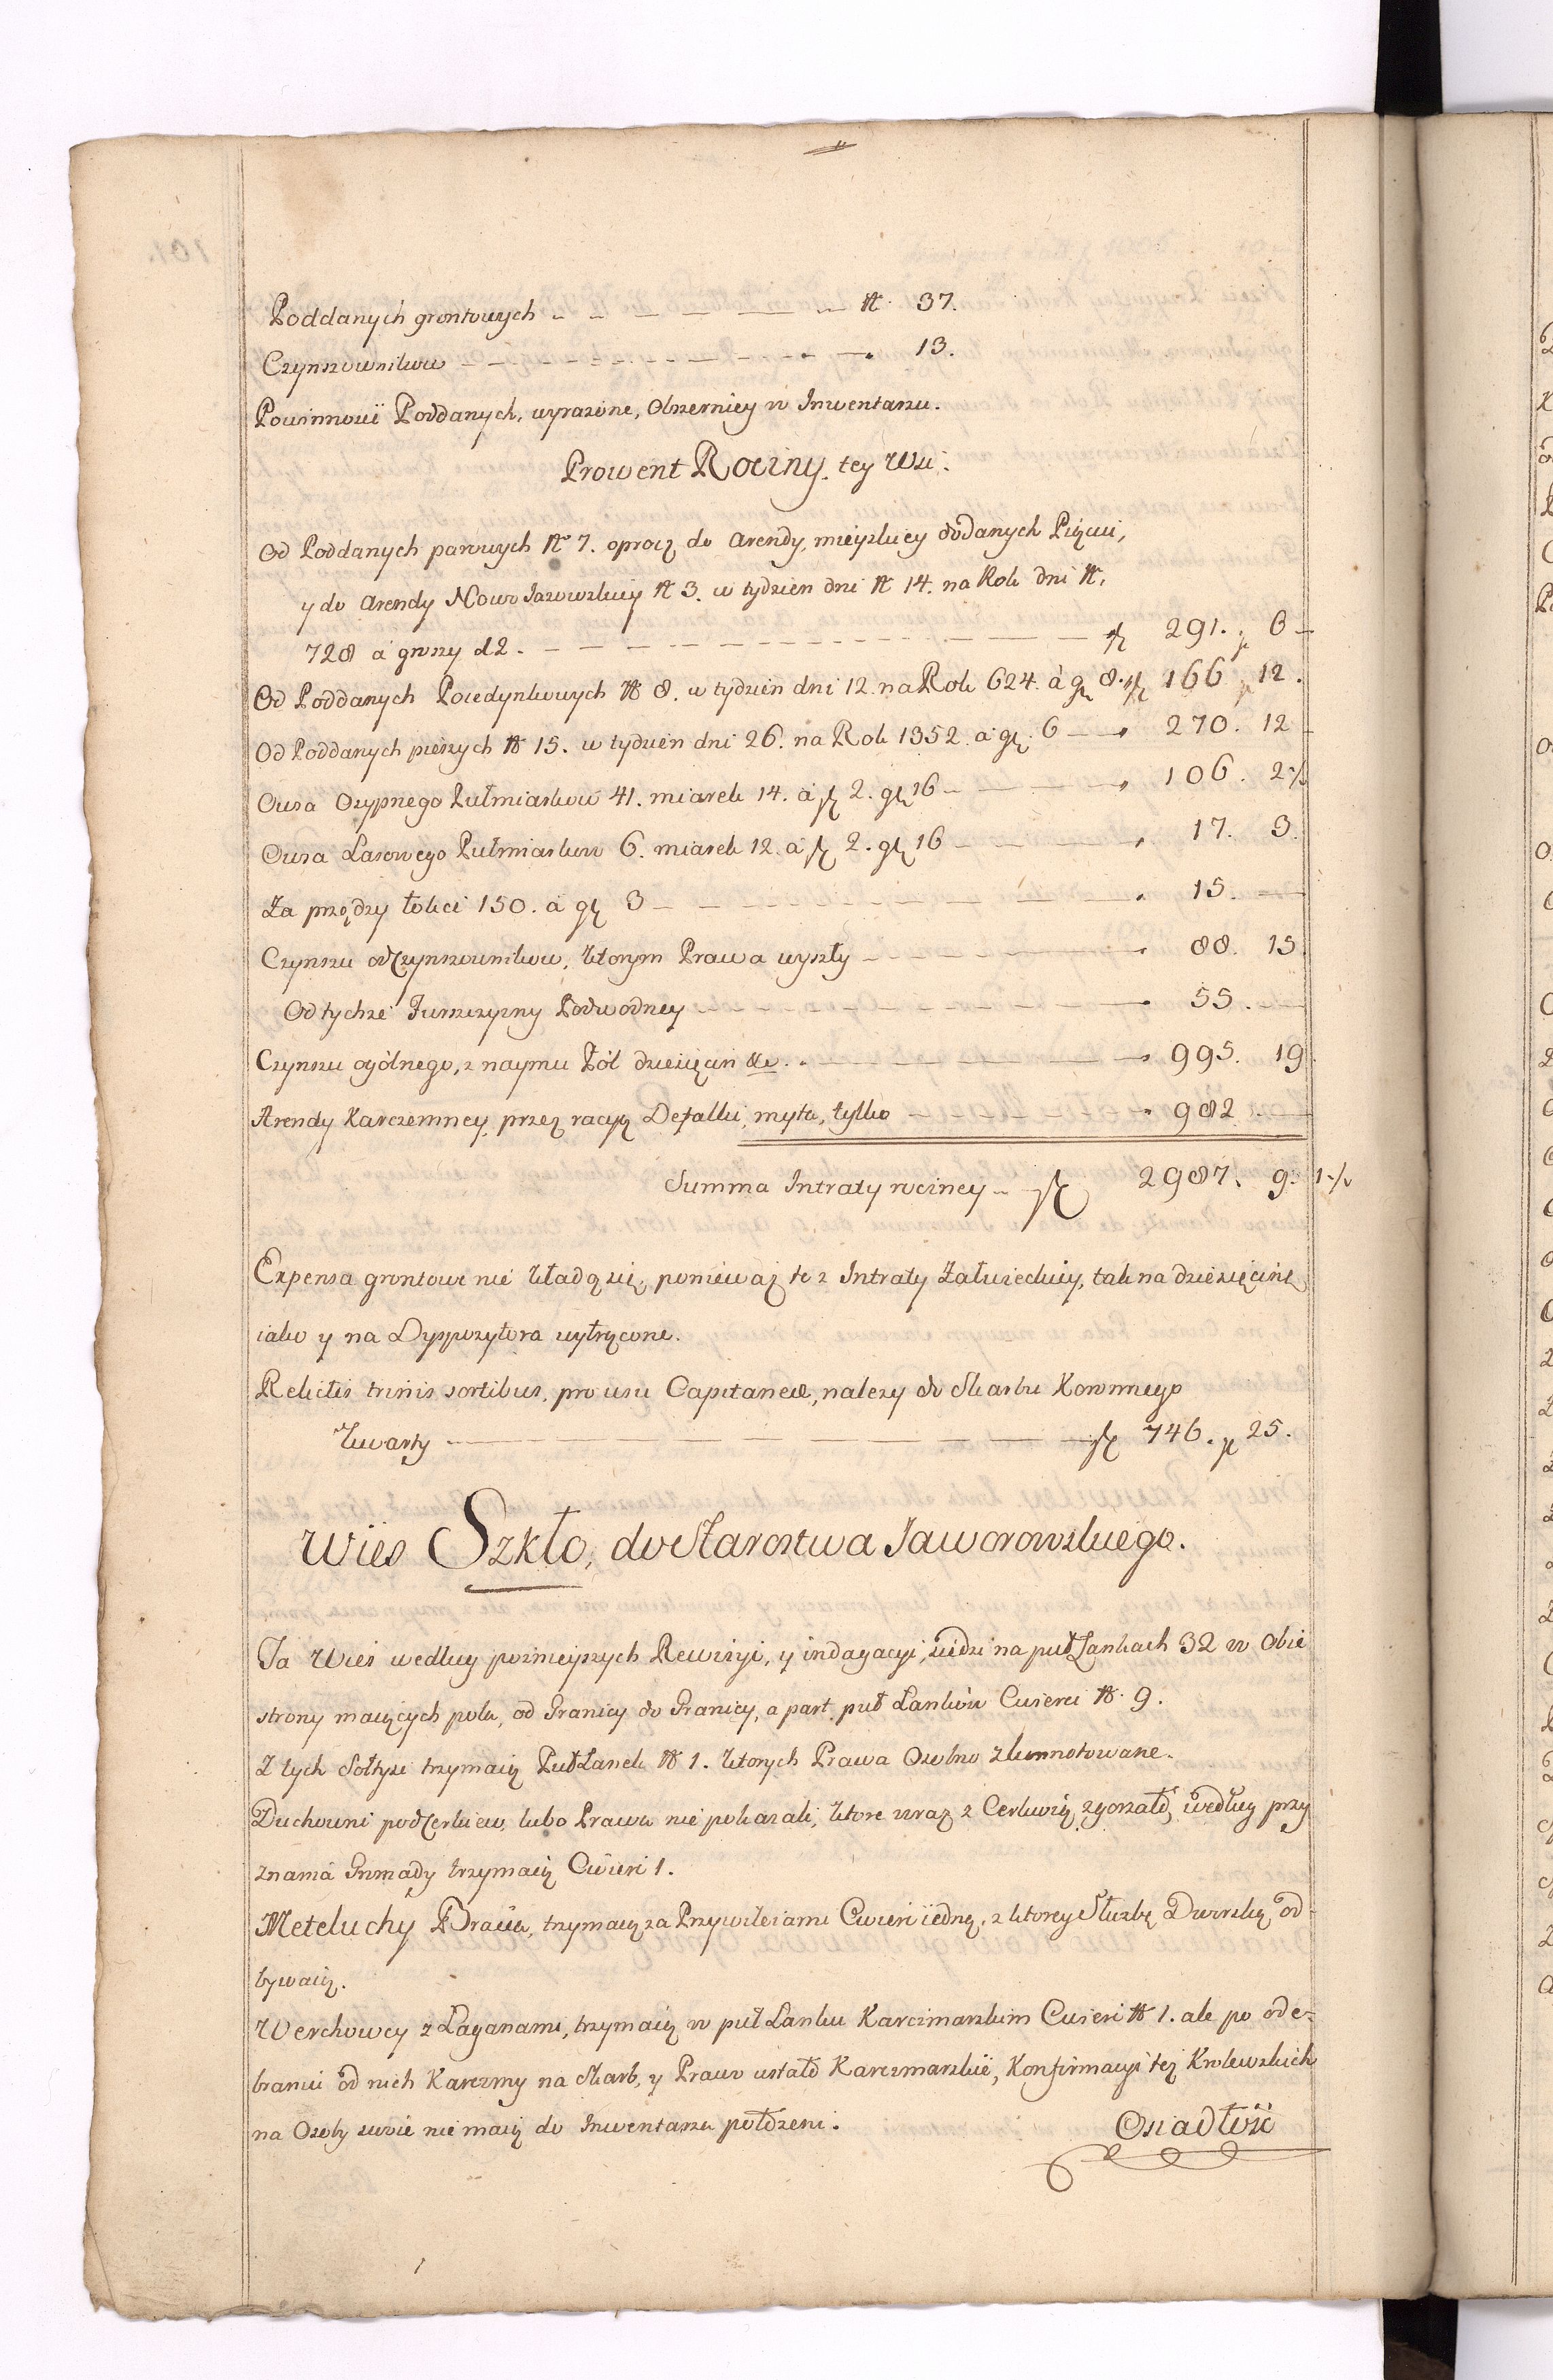 Poddanych grontowych — — — № 37.
Czynszownikow — — — 13.
Powinności Poddanych, wyrażone, Obszerniey w Inwentarzu.
Prowent Roczny tey Wsi.
Od Poddanych parowych № 7. oprocz do Arendy, mieyskiey dodanych Pięciu,
y do Arendy Nowo Jazowskiey № 3. w tydzien dni № 14. na Rok dni №.
728 á groszy d 12. — — — 291. 6 —
Od Poddanych Poiedynkowych № 8. w tydzien dni 12. na Rok 624. à gr 8. 166 12.
Od Poddanych pieszych № 15. w tydzien dni 26. na Rok 1352. a gr. 6 — 270. 12
Owsa Osypnego Pułmiarkow 41. miarek 14. á zł 2. gr 16 — — 106. 2 ½
Owsa Lasowego Pułmiarkow 6. miarek 12. á zł 2. gr 16 — — 17. 3.
Za przędzy łokci 150. á gr 3 — — — 15. —
Czynszu od Czynszownikow, ktorym Prawa wyszły — — — 88. 15.
Od tychże Juszczyzny Podwodney — — — 55. —
Czynszu ogólnego, z naymu Pól dziesięcin &c. — — — 995. 19
Arendy Karczemney, przez racyą Defalki, myta, tylko — — 982 —
Summa Intraty roczney — zł 2987. 9. 1 ½
Expensa grontowe nie kładą się, poniewaz te z Intraty Załuieckiey, tak na dziesięcinę
iako y na Dyspozytora wytrącone.
Relictis trinis sortibus, pro usu Capitaneae, nalezy do Skarbu Koronnego
Kwarty — — — zł 746. gr 25.
Wies Szkło, do Starostwa Jaworowskiego.
Ta Wies według poznieyszych Rewizyi, y indagacyi, siedzi na puł Łankach 32 w Obie
strony maiących pola, od Granicy do Granicy, a part. puł Łankow Cwierci № 9.
Z tych Sołtysi trzymaią Puł Łanek № 1. ktorych Prawa Osobno zkonnotowane.
Duchowni pod Cerkiew, lubo Prawa nie pokazali, ktore wraz z Cerkwią zgorzało, według przy
znania Gromady trzymaią Cwierć 1.
Meteluchy Bracia, trzymaią za Przywileiami Cwierć iedną, z ktorey Służbę Dworską od-
bywaią.
Werchowcy z Łaganami, trzymaią w puł Łanku Karczmarskim Cwierć № 1. ale po ode-
braniu od nich Karczmy na Skarb, y Prawo ustało Karczmarskie, Konfirmacyi tej Krolewskich
na Osoby swoie nie maią do Inwentarza połozeni.
Osiadłość